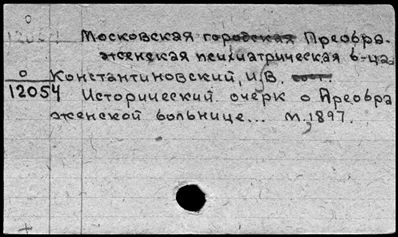 Московская городская Преобра-
женская психиатрическая б-ца.
О Константиновский, И.В. сост.
12054 Исторический очерк о Преобра
женской больнице... М. 1897.